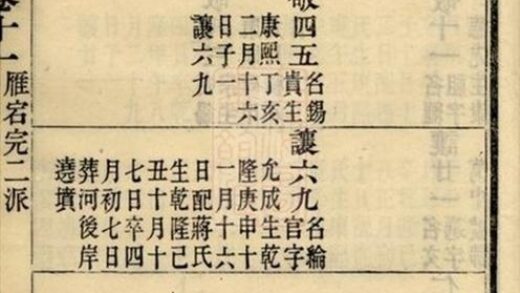 敬四五名錫
貴生
康熙丁亥
二月十六
日子一
讓六九
讓六九名綸
官字
允成生乾
隆庚申十
一月十六
日配蔣氏
生乾隆己
丑十月十
七日卒四
月初七日
葬河後岸
澆墳
卷十一 雁宕完二派